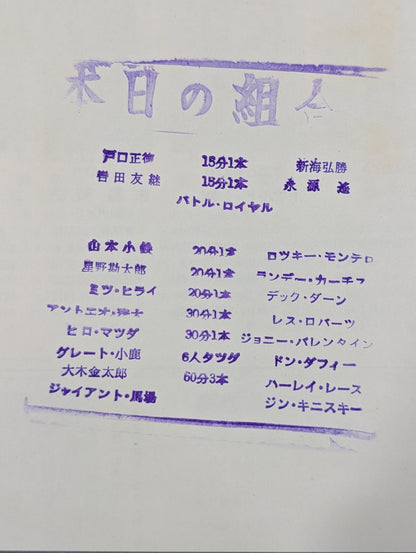 本日の組合
戸口正徳 15分1本 新海弘勝
岩田友継 15分1本 永源遙
バトル・ロイヤル
山本小鉄 20分1本 ロッキー・モンテロ
星野勘太郎 20分1本 ランデー・カーチス
ミツ・ヒライ 20分1本 デック・ダーン
アントニオ・猪木 30分1本 レス・ロバーツ
ヒロ・マツダ 30分1本 ジョニー・バレンタイン
グレート・小鹿 6人タッグ ドン・ダフィー
大木金太郎 60分3本 ハーレイ・レース
ジャイアント・馬場 ジン・キニスキー